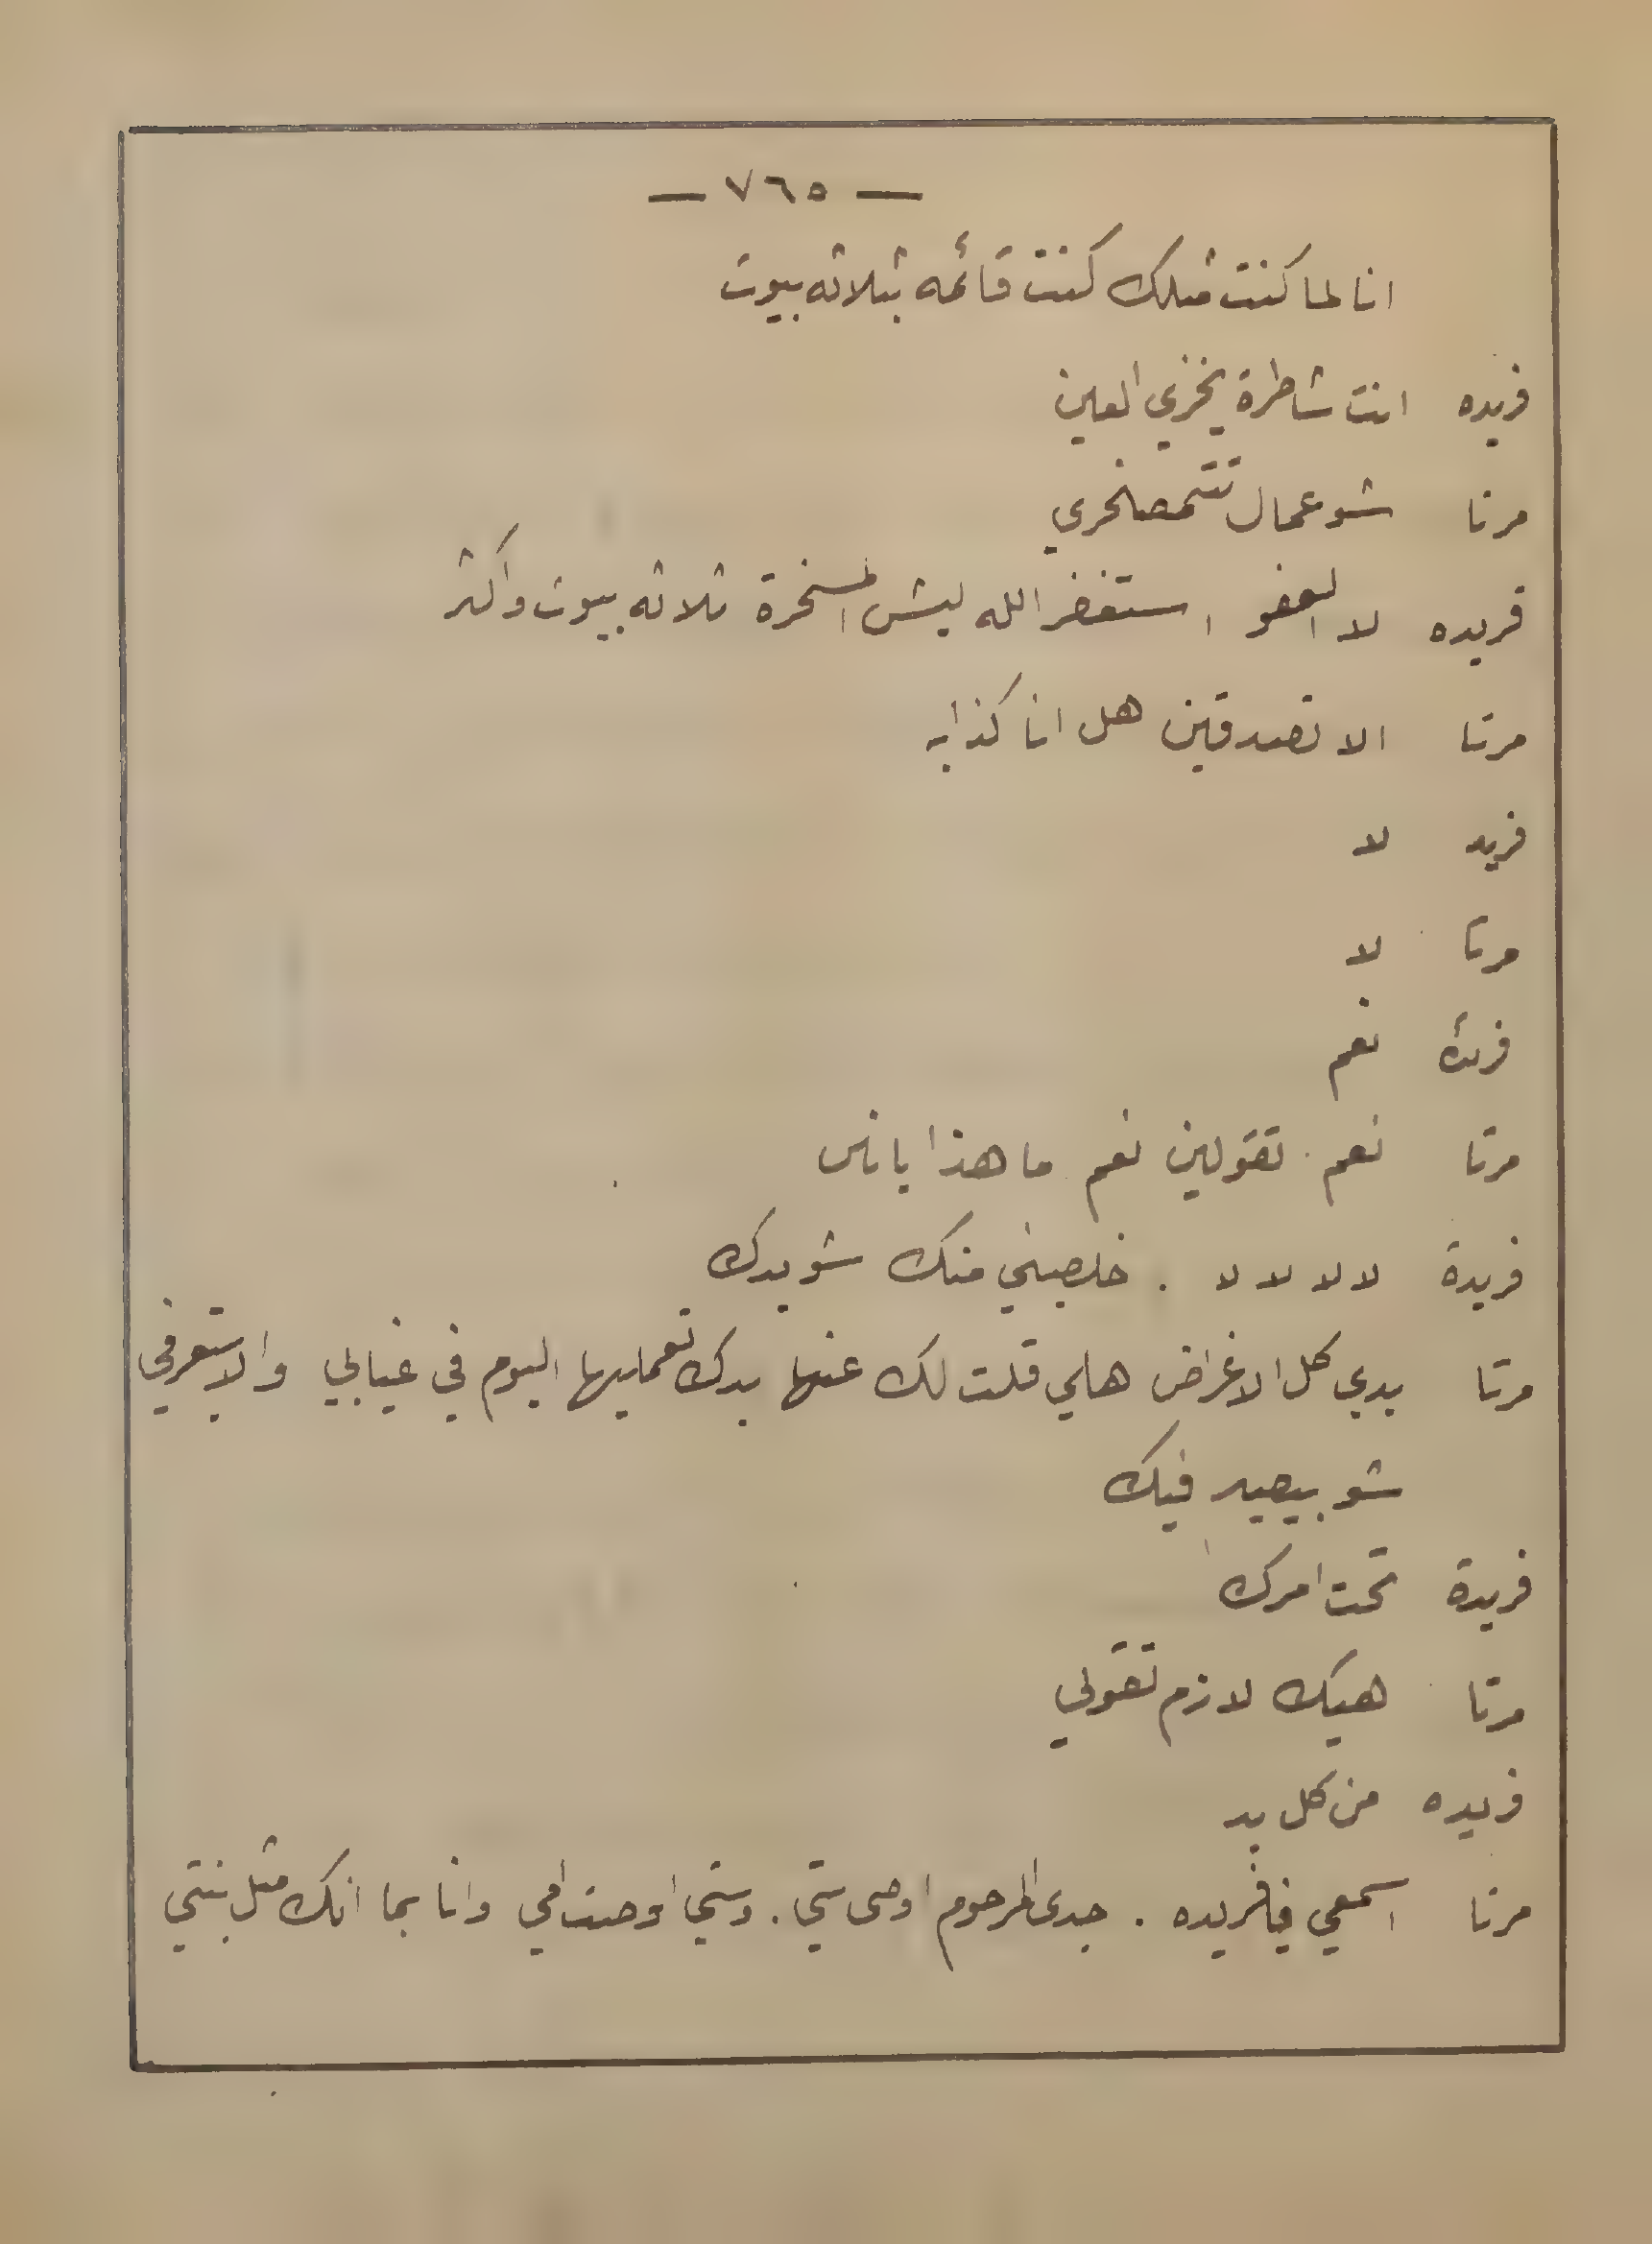 — ٧٦٥ —
انا لما كنت مثلك كنت قائمه بثلاثه بيوت
فريده انت شاطرة يخزي العين
مرتا شو عمال تتمصخري
فريده لا العفو استغفر الله ليش المسخرة ثلاثه بيوت واكثر
مرتا الا تصدقين هل انا كذابه
فريد لا
مرتا لا
فريدة نعم
مرتا نعم . تقولين نعم ما هذا يا ناس
فريدة لا لا لا لا . خلصيني منك شو بدك
مرتا بدي كل الاغراض هلي قلت لك عنها بدك تعمليها اليوم في غيابي والا بتعرفي
شو بيصير فيك
فريدة تحت امرك
مرتا هيك لازم تقولي
فريده من كل بد
مرتا اسمعي يا فريده . جدى المرحوم اوصى ستي . وستي اوصت امي وانا بما انك مثل بنتي